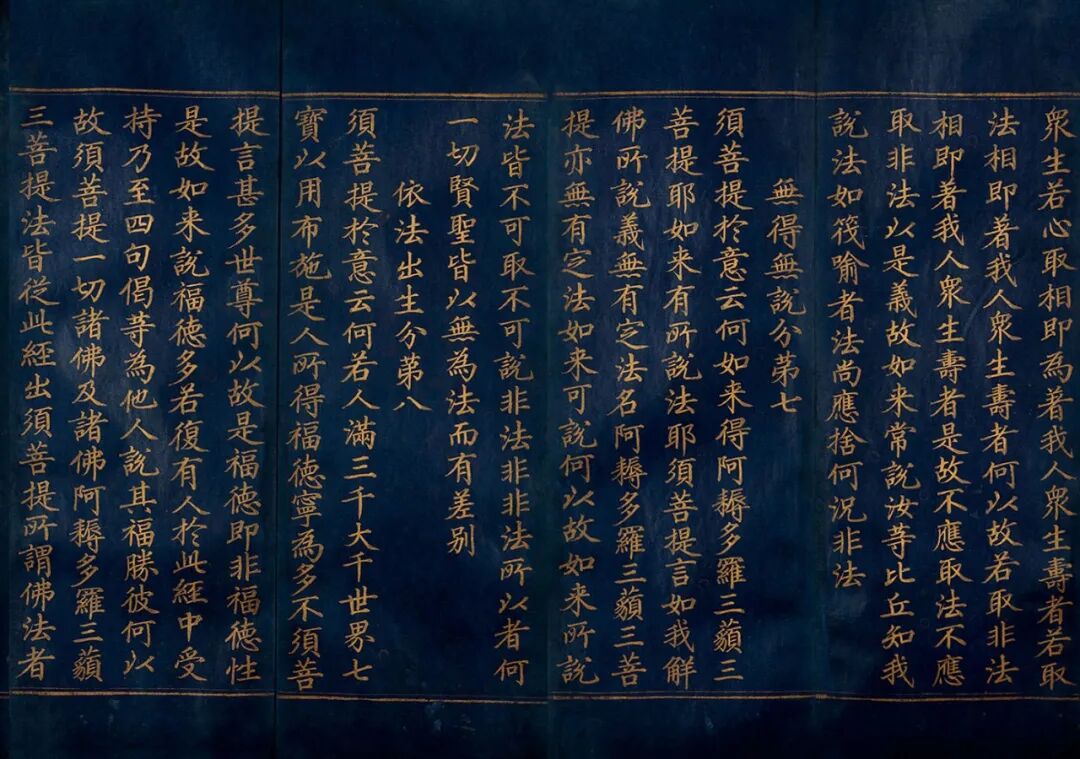 衆生若心取相即為著我人衆生壽者若取
法相即著我人衆生壽者何以故若取非法
相即著我人衆生壽者是故不應取法不應
取非法以是義故如来常說汝等比丘知我
說法如筏喻者法尚應捨何況非法
無得無說分第七
須菩提於意云何如来得阿耨多羅三藐三
菩提耶如来有所說法耶須菩提言如我解
佛所說義無有定法名阿耨多羅三藐三菩
提亦無有定法如来可說何以故如来所說
法皆不可取不可說非法非非法所以者何
一切賢聖皆以無為法而有差别
依法出生分第八
須菩提於意云何若人滿三千大千世界七
寶以用布施是人所得福德寧為多不須菩
提言甚多世尊何以故是福德即非福德性
是故如来說福德多若復有人於此經中受
持乃至四句偈等為他人說其福勝彼何以
故須菩提一切諸佛及諸佛阿耨多羅三藐
三菩提法皆從此經出須菩提所謂佛法者